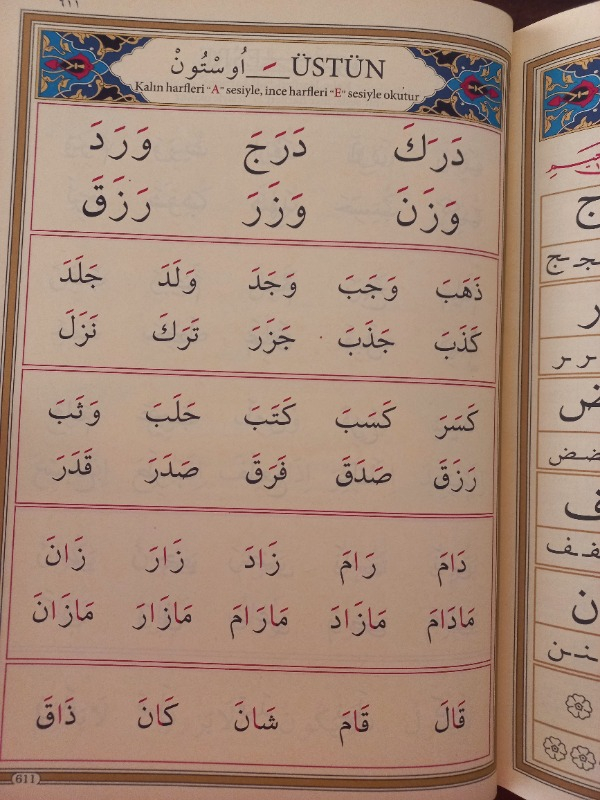 ٦١١
اُوسْتُونْ ـَ ÜSTÜN
Kalın harfleri "A" sesiyle, ince harfleri "E" sesiyle okutur
دَرَكَ دَرَجَ وَرَدَ
وَزَنَ وَزَرَ رَزَقَ
ذَهَبَ وَجَبَ وَجَدَ وَلَدَ جَلَدَ
كَذَبَ جَذَبَ جَزَرَ تَرَكَ نَزَلَ
كَسَرَ كَسَبَ كَتَبَ حَلَبَ وَثَبَ
رَزَقَ صَدَقَ فَرَقَ صَدَرَ قَدَرَ
دَامَ رَامَ زَادَ زَارَ زَانَ
مَادَامَ مَازَادَ مَارَامَ مَازَارَ مَازَانَ
قَالَ قَامَ شَانَ كَانَ ذَاقَ
611
ج
ججج
ر
ررر
ض
ضضض
ف
ففف
ن
ننن